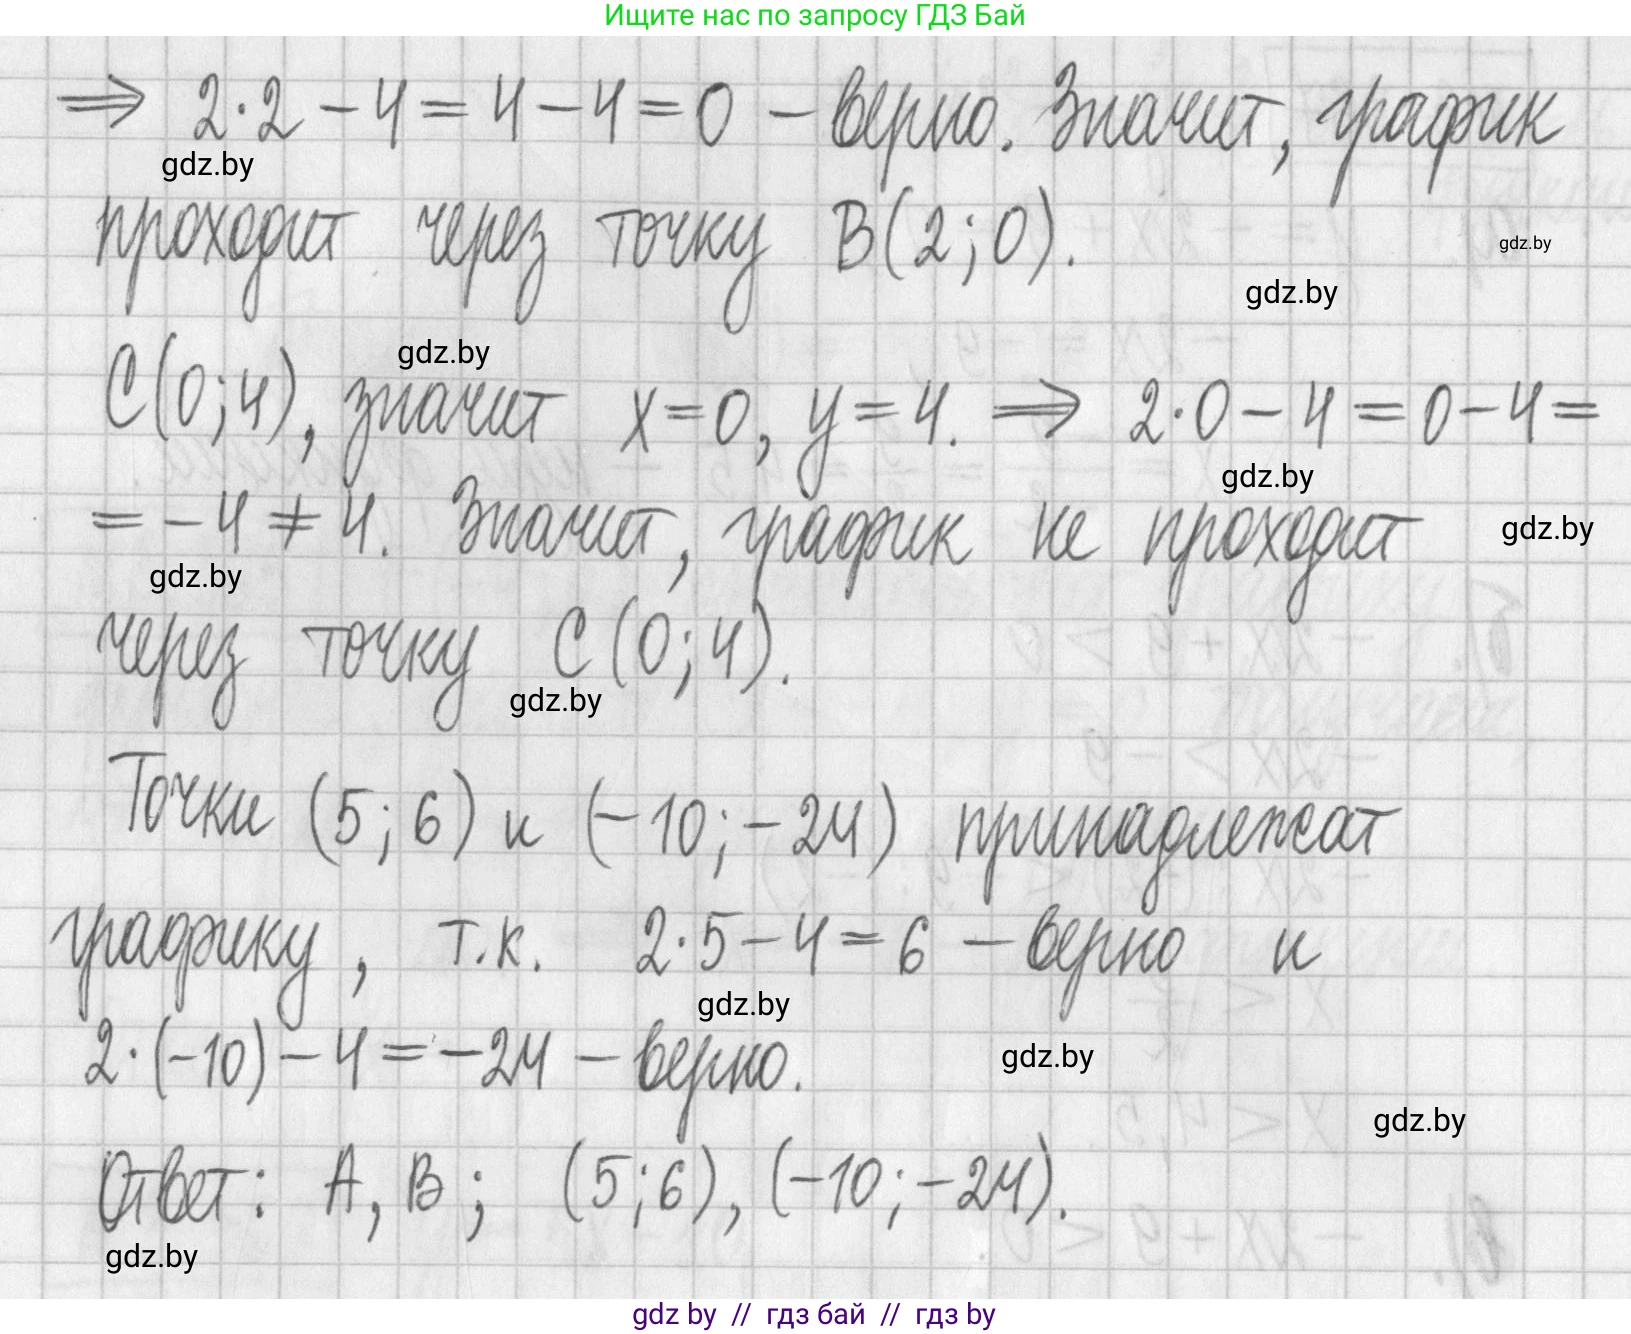 Ищите нас по запросу ГДЗ Бай
⇒ 2·2 – 4 = 4 – 4 = 0 – верно. Значит, график
gdz.by
проходит через точку B(2;0).
gdz.by
gdz.by
gdz.by
C(0;4), значит x=0, y=4. ⇒ 2·0 – 4 = 0 – 4 =
gdz.by
= – 4 ≠ 4. Значит, график не проходит
gdz.by
gdz.by
через точку C(0;4).
gdz.by
Точки (5;6) и (–10;–24) принадлежат
графику, т.к. 2·5 – 4 = 6 – верно и
gdz.by
2·(–10) – 4 = –24 – верно.
gdz.by
gdz.by
Ответ: A, B; (5;6), (–10;–24).
gdz.by
gdz by // гдз бай // гдз by